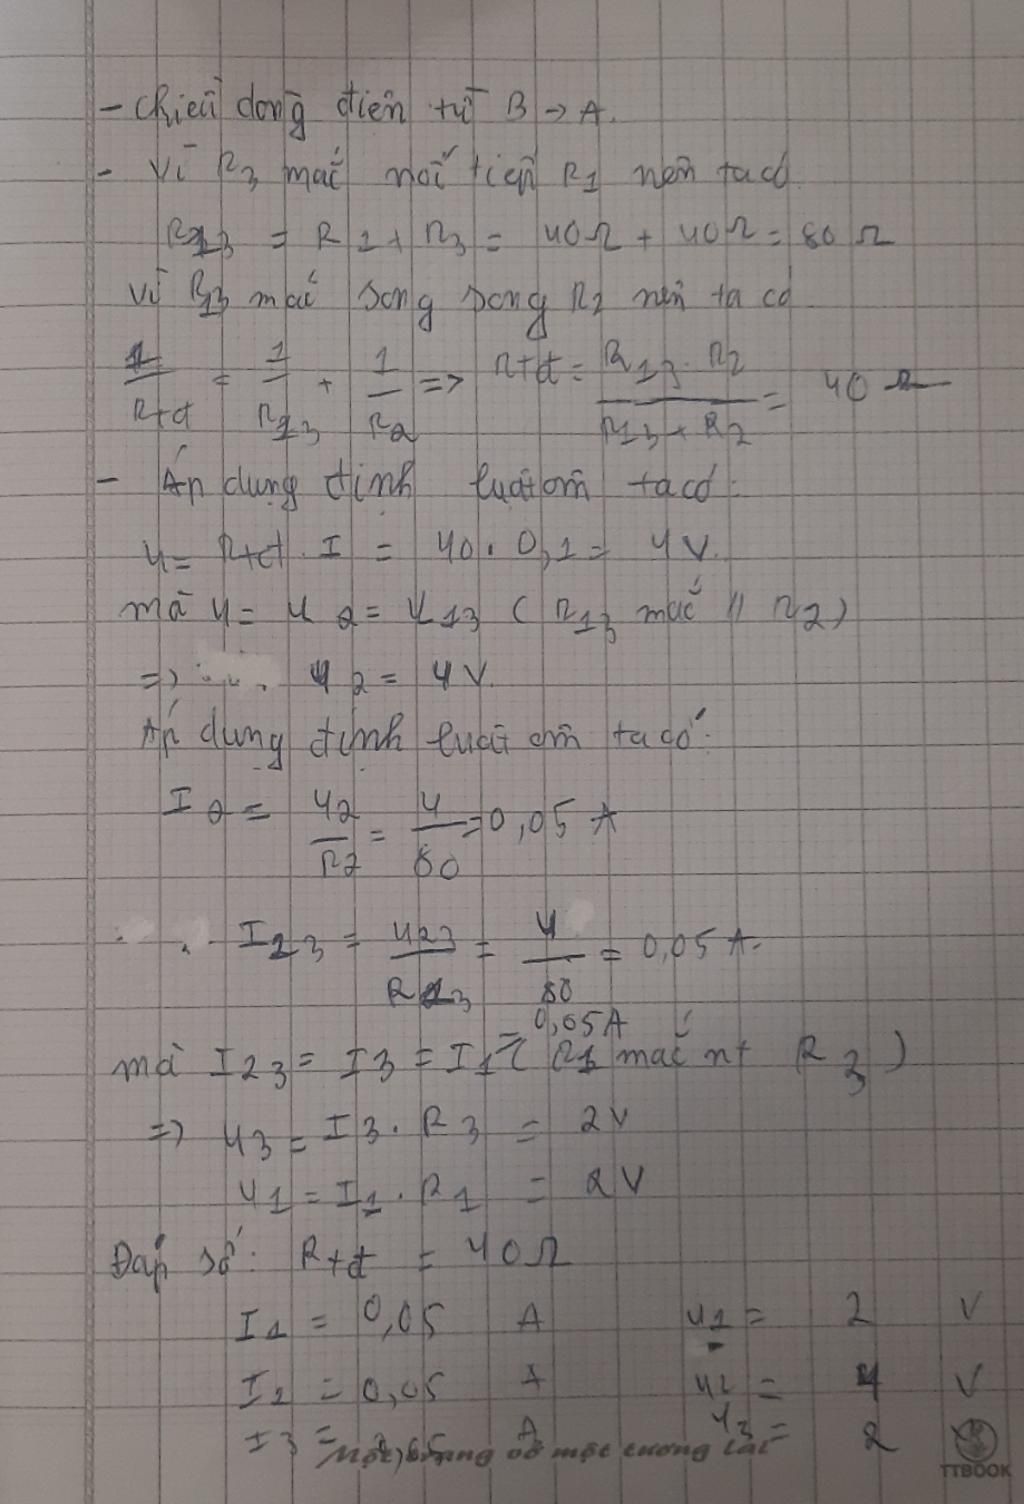 - Chiều dòng điện từ B → A.
- Vì R3 mắc nối tiếp R1 nên ta có
R13 = R1 + R3 = 40Ω + 40Ω = 80Ω
Vì R13 mắc song song R2 nên ta có
1/Rtđ = 1/R13 + 1/R2 => Rtđ = R13 . R2 / R13 + R2 = 40Ω
- Áp dụng định luật ôm ta có:
U = Rtđ . I = 40 . 0,1 = 4V.
mà U = U2 = U13 ( R13 mắc // R2 )
=> U2 = 4V.
Áp dụng định luật ôm ta có:
I2 = U2/R2 = 4/80 = 0,05 A
I23 = U23/R13 = 4/80 = 0,05 A.
mà I23 = I3 = I1 = 0,05A ( R1 mắc nt R3 )
=> U3 = I3 . R3 = 2V
U1 = I1 . R1 = 2V
Đáp số: Rtđ = 40Ω
I1 = 0,05 A U1 = 2 V
I2 = 0,05 A U2 = 4 V
I3 = 0,05 A U3 = 2 V
một tương lai
TTBOOK